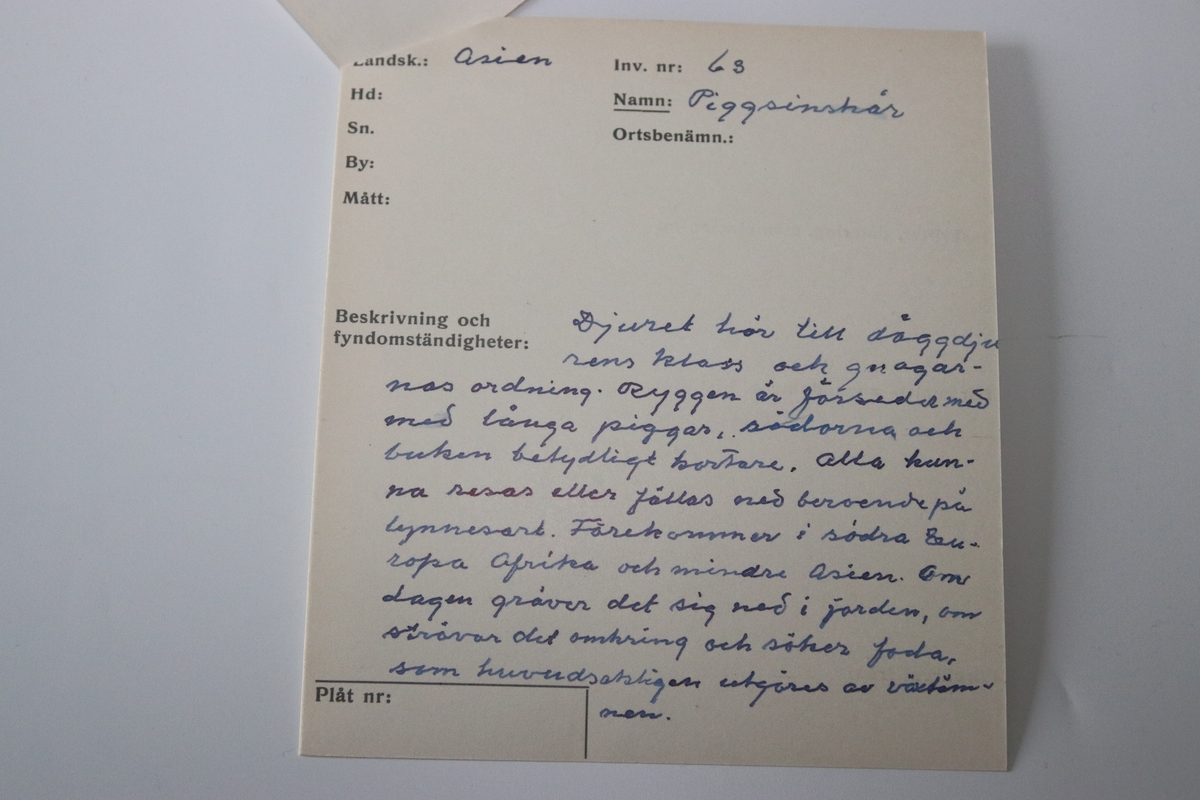 Landsk.: Asien
Inv. nr: 63
Hd:
Namn: Piggsinskår
Sn.
Ortsbenämn.:
By:
Mått:
Beskrivning och
fyndomständigheter:
Djuret hör till däggdju
rens klass och gnagar-
nas ordning. Ryggen är försedd med
med långa piggar, sidorna och
buken betydligt kortare. Alla kun-
na resas eller fällas ned beroende på
lynnesart. Förekommer i södra Eu-
ropa Afrika och mindre Asien. Om
dagen gräver det sig ned i jorden, om
strövar det omkring och söker foda,
som huvudsakligen utgöres av växtäm-
nen.
Plåt nr: